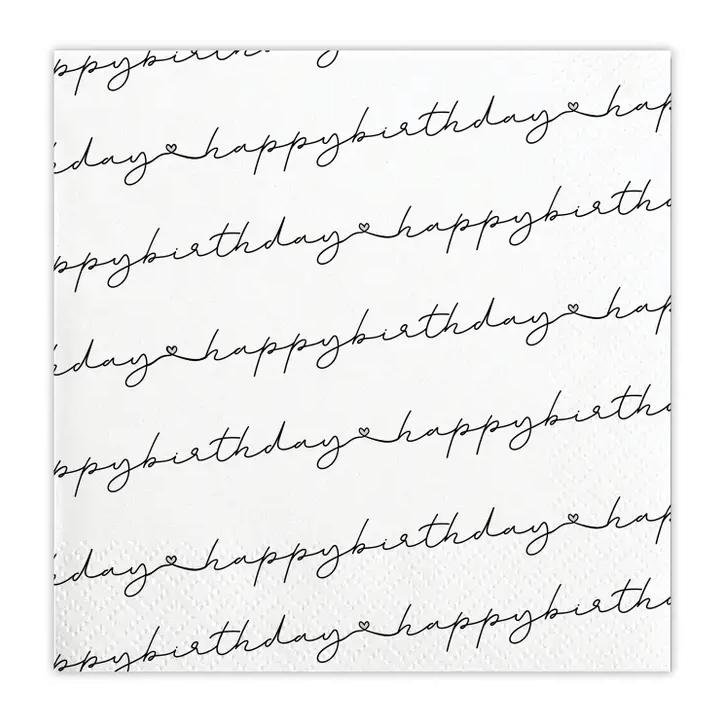 ppybirthday
day♡happybirthday♡hap
ppybirthday♡happybirth
day♡happybirthday♡hap
ppybirthday♡happybirth
day♡happybirthday♡hap
ppybirthday♡happybirth